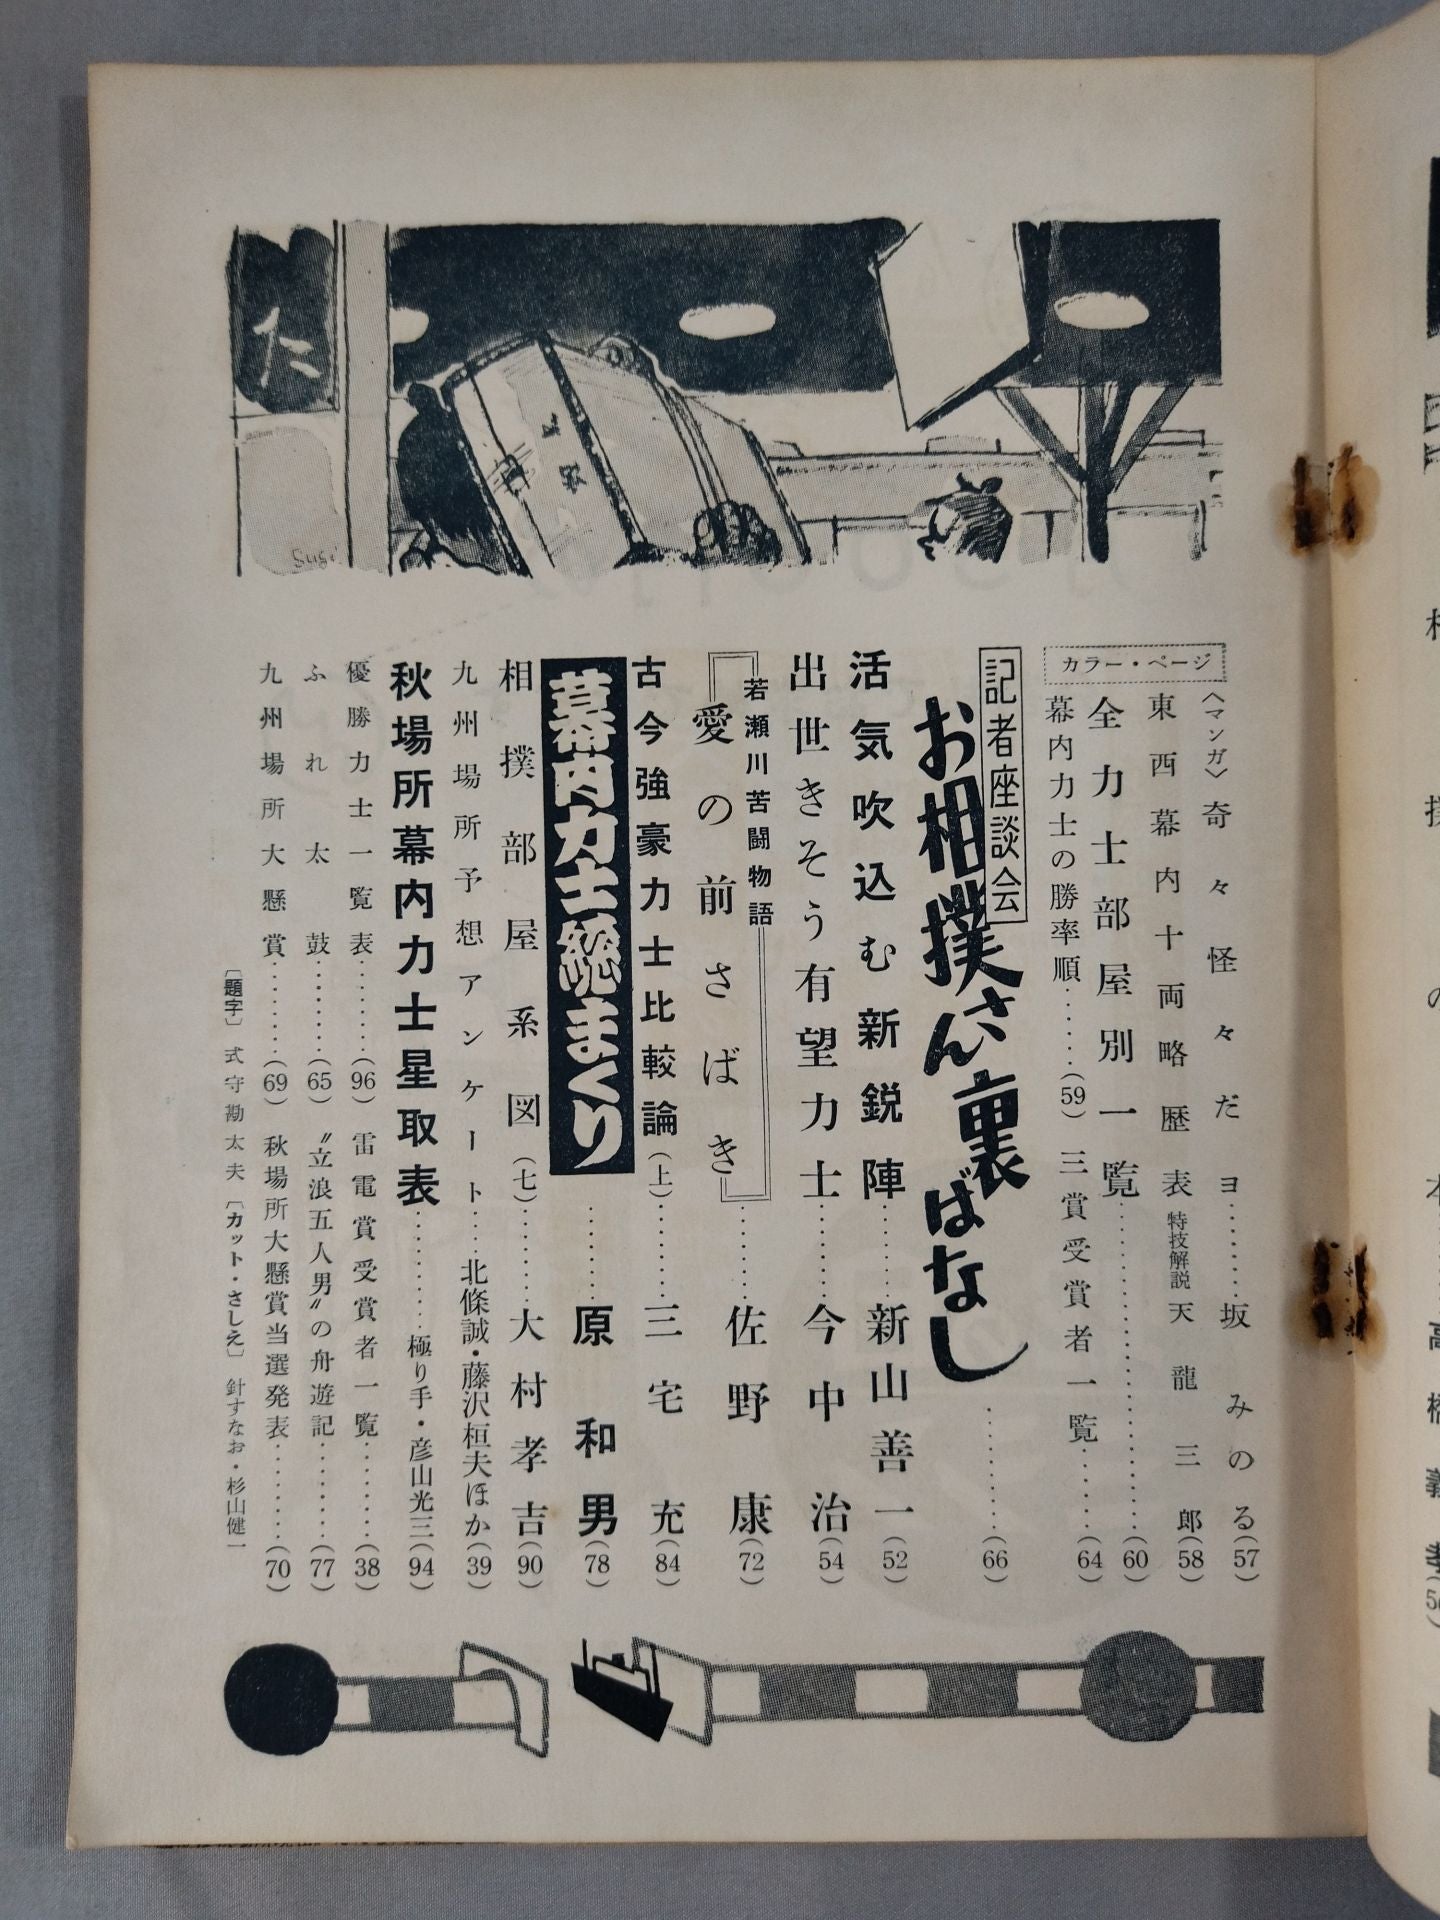 カラー・ページ
〈マンガ〉奇々怪々だヨ……坂みのる(57)
東西幕内十両略歴表 特技解説 天龍三郎(58)
全力士部屋別一覧……(60)
幕内力士の勝率順……(59) 三賞受賞者一覧……(64)
記者座談会
お相撲さん裏ばなし……(66)
活気吹込む新鋭陣……新山善一(52)
出世きそう有望力士……今中治(54)
若瀬川苦闘物語
愛の前さばき……佐野康(72)
古今強豪力士比較論(上)……三宅充(84)
幕内力士総まくり……原和男(78)
相撲部屋系図(七)……大村孝吉(90)
九州場所予想アンケート……北條誠・藤沢桓夫ほか(39)
秋場所幕内力士星取表……極り手・彦山光三(94)
優勝力士一覧表……(96) 雷電賞受賞者一覧……(38)
ふれ太鼓……(65) 〝立浪五人男〟の舟遊記……(77)
九州場所大懸賞……(69) 秋場所大懸賞当選発表……(70)
〔題字〕式守勘太夫 〔カット・さしえ〕針すなお・杉山健一
た
Susi